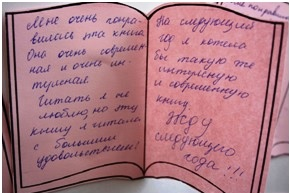 Мне очень понра-
вилась эта книга.
Она очень современ-
ная и очень ин-
тересная.
Читать я не
люблю, но эту
книгу я читала
с большим
удовольствием!
На следующий
год я хотела
бы такую же
интересную
и современную
книгу.
Жду
следующего
года!!!